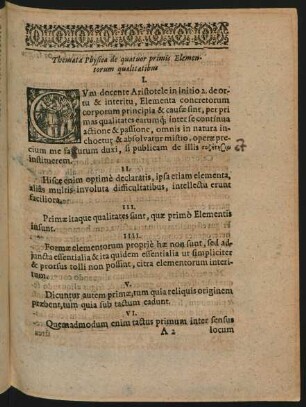 Themata Physica de quatuor primis Elemen-
torum qualitatibus
I.
CVm docente Aristotele in initio 2. de or-
tu & interitu, Elementa concretorum
corporum principia & causæ sint, per pri-
mas qualitates eatenus inter se continua
actione & passione, omnis in natura in-
choetur & absolvatur mistio, operæ pre-
cium me facturum duxi, si publicam de illis
instituerem.
II.
Hisce enim optimè declaratis, ipsa etiam elementa,
aliàs multis involuta difficultatibus, intellectu erunt
faciliora.
III.
Primæ itaque qualitates sunt, quæ primò Elementis
insunt.
IIII.
Formæ elementorum propriè hæ non sunt, sed ad-
juncta essentialia & ita quidem essentialia ut simpliciter
& prorsus tolli non possint, citra elementorum interi-
tum.
V.
Dicuntur autem primæ, tum quia reliquis originem
præbent, tum quia sub tactum cadunt.
VI.
Quemadmodum enim tactus primum inter sensus
A 2 locum